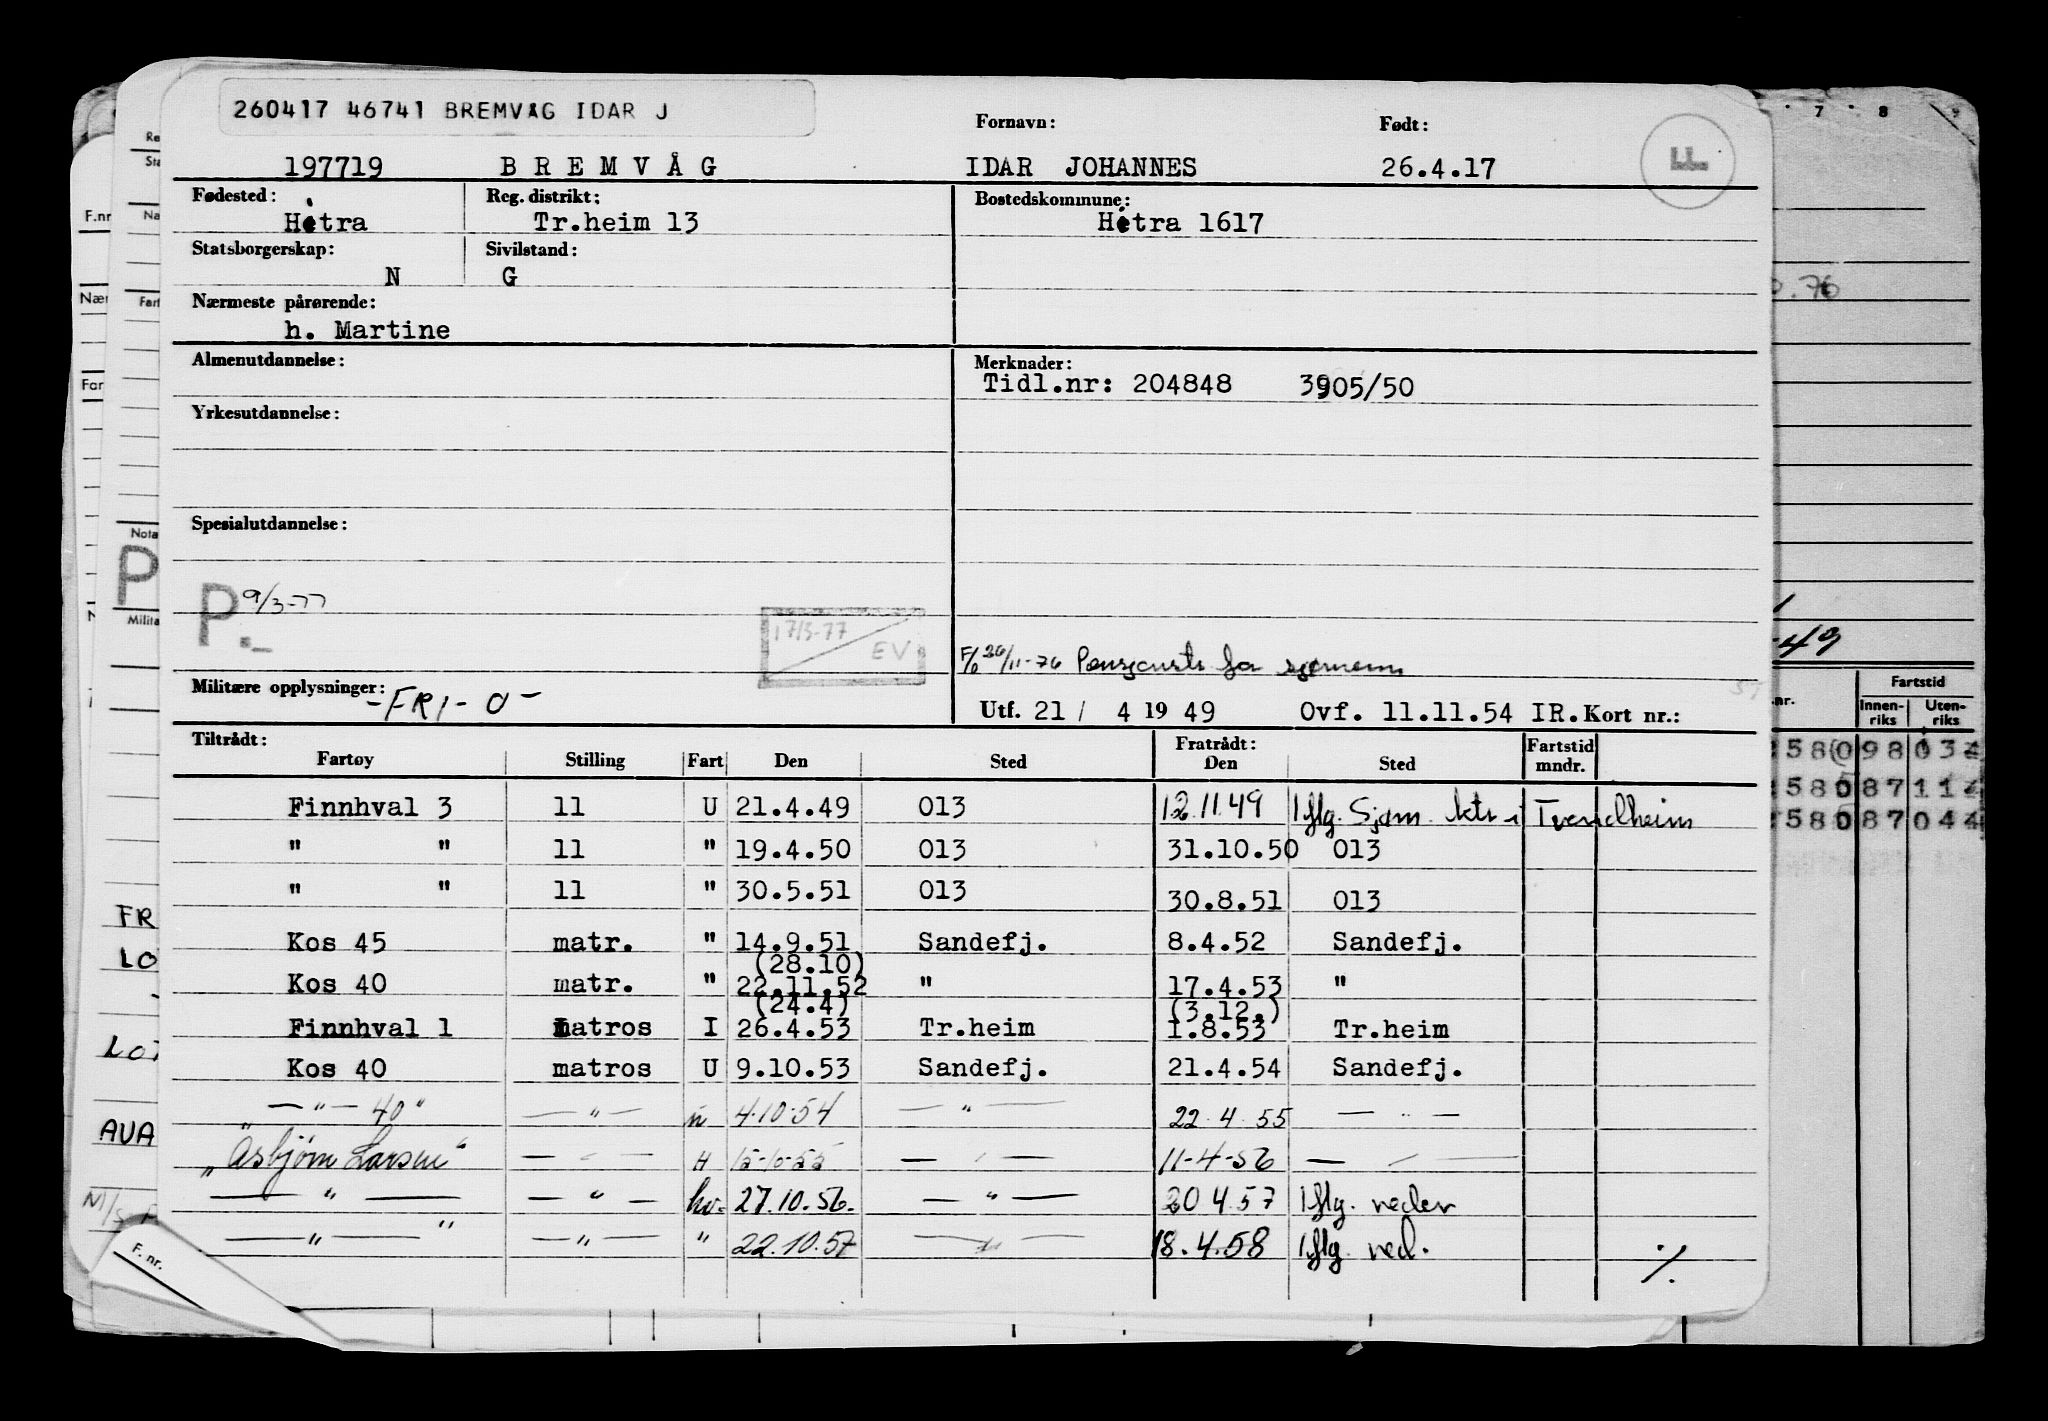 260417 46741 BREMVÅG IDAR J
Fornavn: Født:
197719 BREMVÅG IDAR JOHANNES 26.4.17
Fødested: Reg. distrikt: Bostedskommune:
Hitra Tr.heim 13 Hitra 1617
Statsborgerskap: Sivilstand:
N G
Nærmeste pårørende:
h. Martine
Almenutdannelse: Merknader:
Tidl.nr: 204848 3905/50
Yrkesutdannelse:
Spesialutdannelse:
P. 9/3-77
17/3-77 EV
26/11-76 for
Militære opplysninger: -FRI-O-
Utf. 21/ 4 19 49 Ovf. 11.11.54 IR. Kort nr.:
Tiltrådt: Fratrådt: Fartstid
Fartøy Stilling Fart Den Sted Den Sted mndr.
Finnhval 3 11 U 21.4.49 013 12.11.49 Iflg. Sjøm. ktr i Trondheim
" " 11 " 19.4.50 013 31.10.50 013
" " 11 " 30.5.51 013 30.8.51 013
Kos 45 matr. " 14.9.51 Sandefj. 8.4.52 Sandefj.
(28.10)
Kos 40 matr. " 22.11.52 " 17.4.53 "
(24.4) (3.12.)
Finnhval 1 matros I 26.4.53 Tr.heim 1.8.53 Tr.heim
Kos 40 matros U 9.10.53 Sandefj. 21.4.54 Sandefj.
— " — 40" — " — " 4.10.54 — " — 22.4.55 — " —
"Asbjørn Larsen" — " — H 15-10-55 — " — 11-4-56 — " —
— " — — " — hv. 27.10.56. — " — 20 4.57 Iflg. reder
— " — " — " — " 22.10.57 — " — 18.4.58 Iflg. red.
./.
F. nr.
7 8 9
.76
-49
nr. Fartstid
Innen- Uten-
riks riks
F.nr
Nær
Far
Nota
P
Milita
FR
LO
AVA